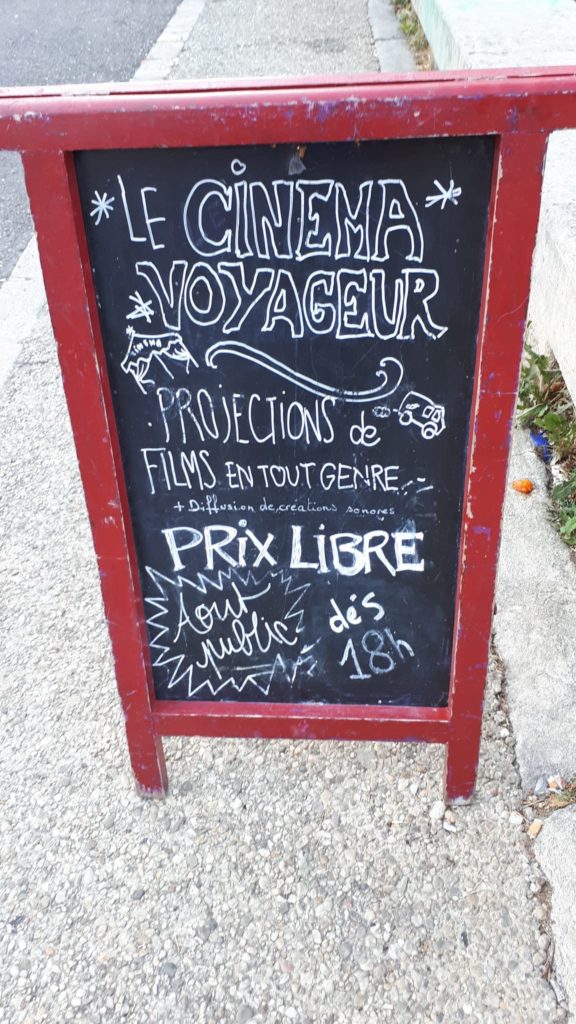 LE CINEMA
VOYAGEUR
CINEMA
PROJECTIONS de
FILMS EN TOUT GENRE...
+ Diffusion de créations sonores
PRIX LIBRE
Tout
public
dés
18h